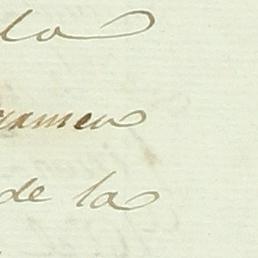 la
examen
de la